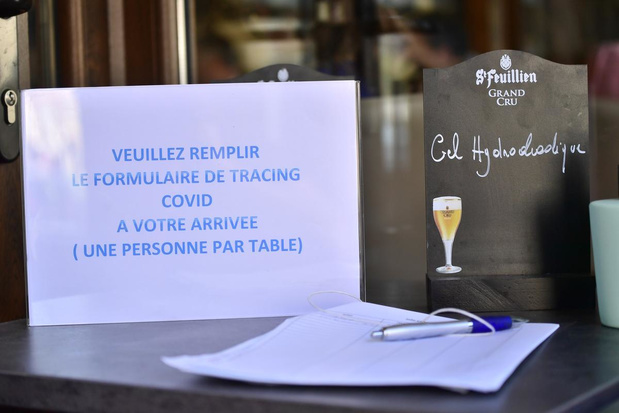 VEUILLEZ REMPLIR
LE FORMULAIRE DE TRACING
COVID
A VOTRE ARRIVEE
( UNE PERSONNE PAR TABLE)
St Feuillien
GRAND
CRU
Gel Hydroalcolique